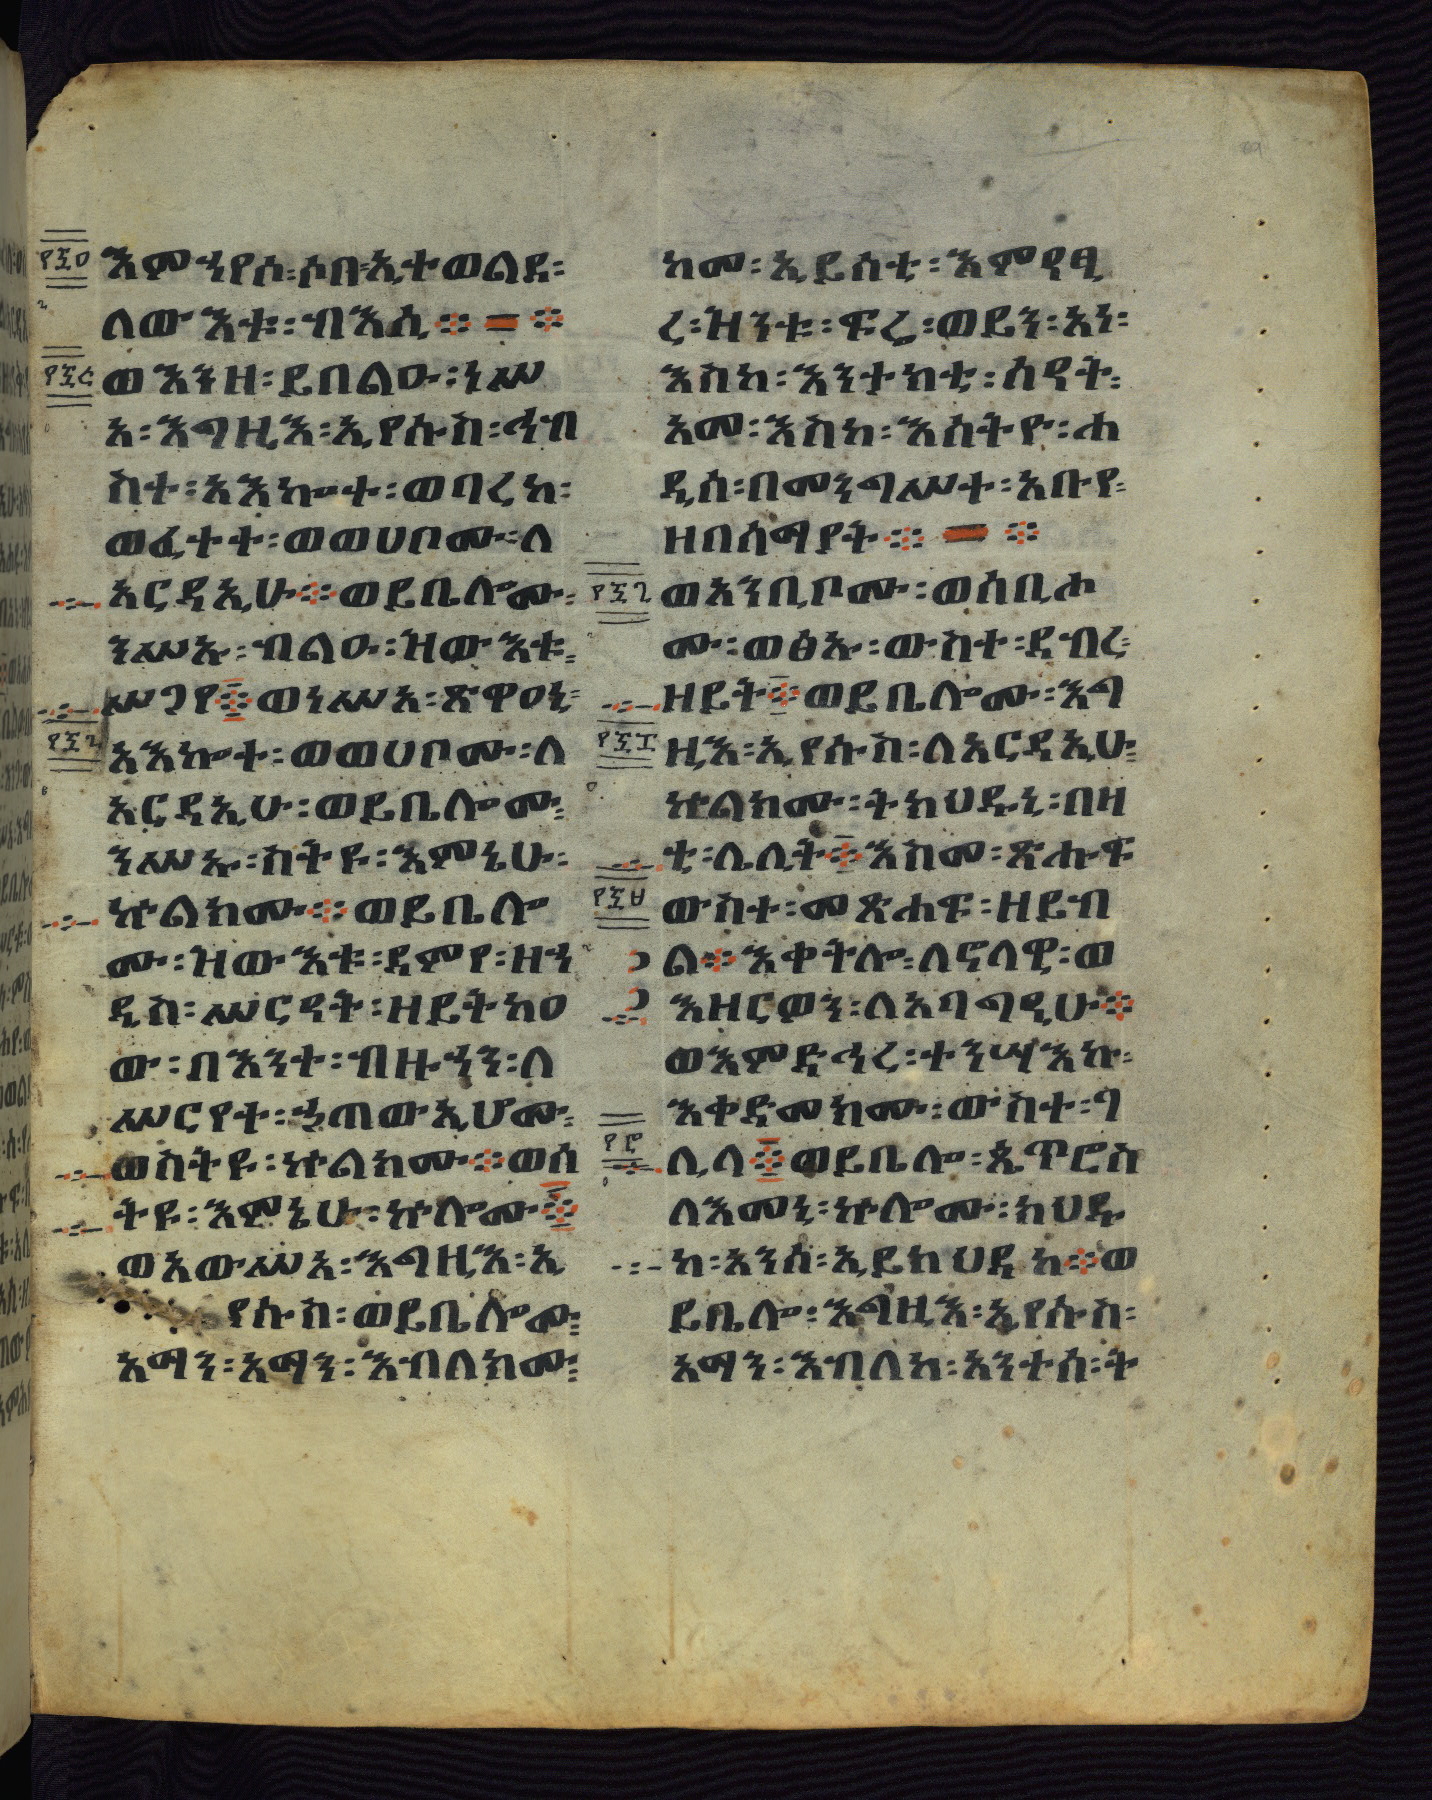 እምኀየሶ፡ሶበ፡ኢተወልደ፡
ለውእቱ፡ብእሲ፨ = ፨
ወእንዘ፡ይበልዑ፡ነሥ
አ፡እግዚእ፡ኢየሱስ፡ኅብ
ስተ፡አእኰተ፡ወባረከ፡
ወፈተተ፡ወወሀቦሙ፡ለ
አርዳኢሁ፨ወይቤሎሙ፡
ንሥኡ፡ብልዑ፡ዝውእቱ፡
ሥጋየ፨ወነሥአ፡ጽዋዐኒ፡
አእኰተ፡ወወሀቦሙ፡ለ
አርዳኢሁ፡ወይቤሎሙ፡
ንሥኡ፡ስትዩ፡እምኔሁ፡
ኵልክሙ፨ወይቤሎ
ሙ፡ዝውእቱ፡ደምየ፡ዘኀ
ዲስ፡ሥርዳት፡ዘይትከዐ
ው፡በእንተ፡ብዙኀን፡ለ
ሥርየተ፡ኃጢውኢሆሙ፡
ወስትዩ፡ኵልክሙ፨ወሰ
ትዩ፡እምኔሁ፡ኵሎሙ፨
ወአውሥአ፡እግዚእ፡ኢ
የሱስ፡ወይቤሎሙ፡
አማን፡አማን፡እብለክሙ፡
ከመ፡ኢይሰቲ፡እምደፂ
ረ፡ዝንቱ፡ፍሬ፡ወይን፡አነ፡
እስከ፡እንተ፡ክቲ፡ሰዓት፡
አመ፡እስከ፡እስትዮ፡ሐ
ዲሰ፡በመንግሥተ፡አቡየ፡
ዘበሰማያት፨ = ፨
ወአንቢቦሙ፡ወሰቢሖ
ሙ፡ወፅኡ፡ውስተ፡ደብረ፡
ዘይት፨ወይቤሎሙ፡እግ
ዚእ፡ኢየሱስ፡ለአርዳኢሁ፡
ኵልክሙ፡ትክህዱኒ፡በዛ
ቲ፡ሌሊት፨እስመ፡ጽሑፍ
ውስተ፡መጽሐፍ፡ዘይብ
ል፨እቀትሎ፡ለኖላዊ፡ወ
እዘርወን፡ለአባግዒሁ፨
ወእምድኅረ፡ተንሣእኩ፡
እቀድመክሙ፡ውስተ፡ገ
ሊላ፨ወይቤሎ፡ጴጥሮስ
ለእመኒ፡ኵሎሙ፡ክህዱ
ከ፡አንሰ፡ኢይክህደከ፨ወ
ይቤሎ፡እግዚእ፡ኢየሱስ፡
አማን፡እብለከ፡አንተሰ፡ት